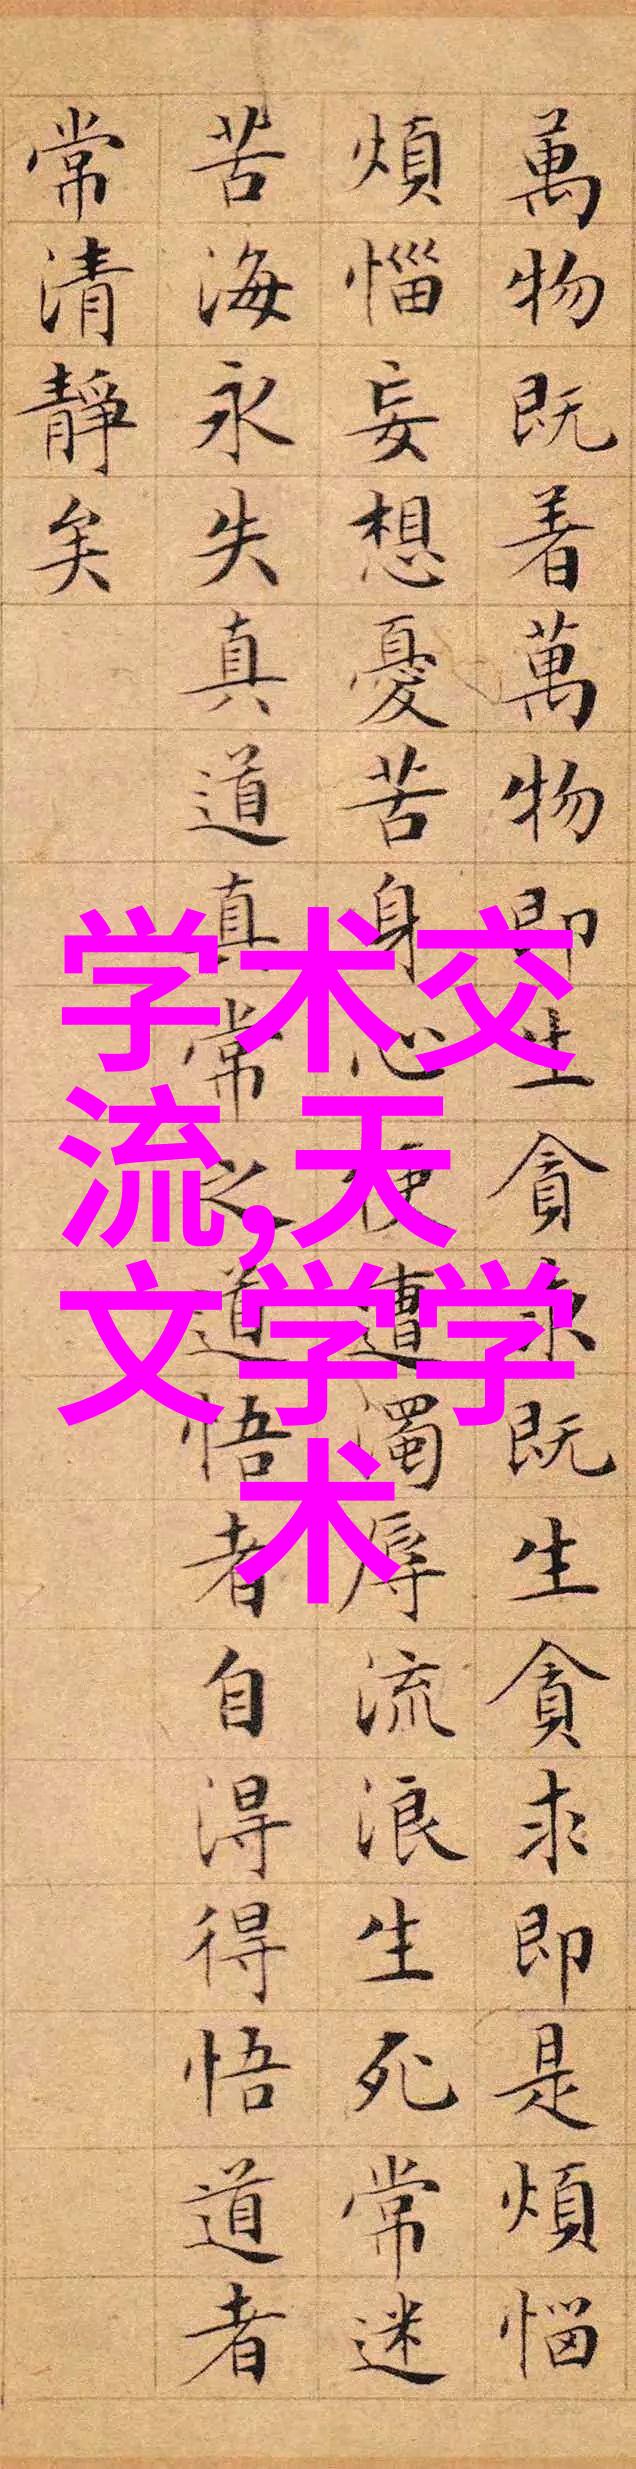 萬物既着萬物即生貪求既生貪求即是煩惱
煩惱妄想憂苦身心便遭濁辱流浪生死常迷
苦海永失真道真常之道悟者自淂得悟道者
常清靜矣
学术交
流,天
文学学
术